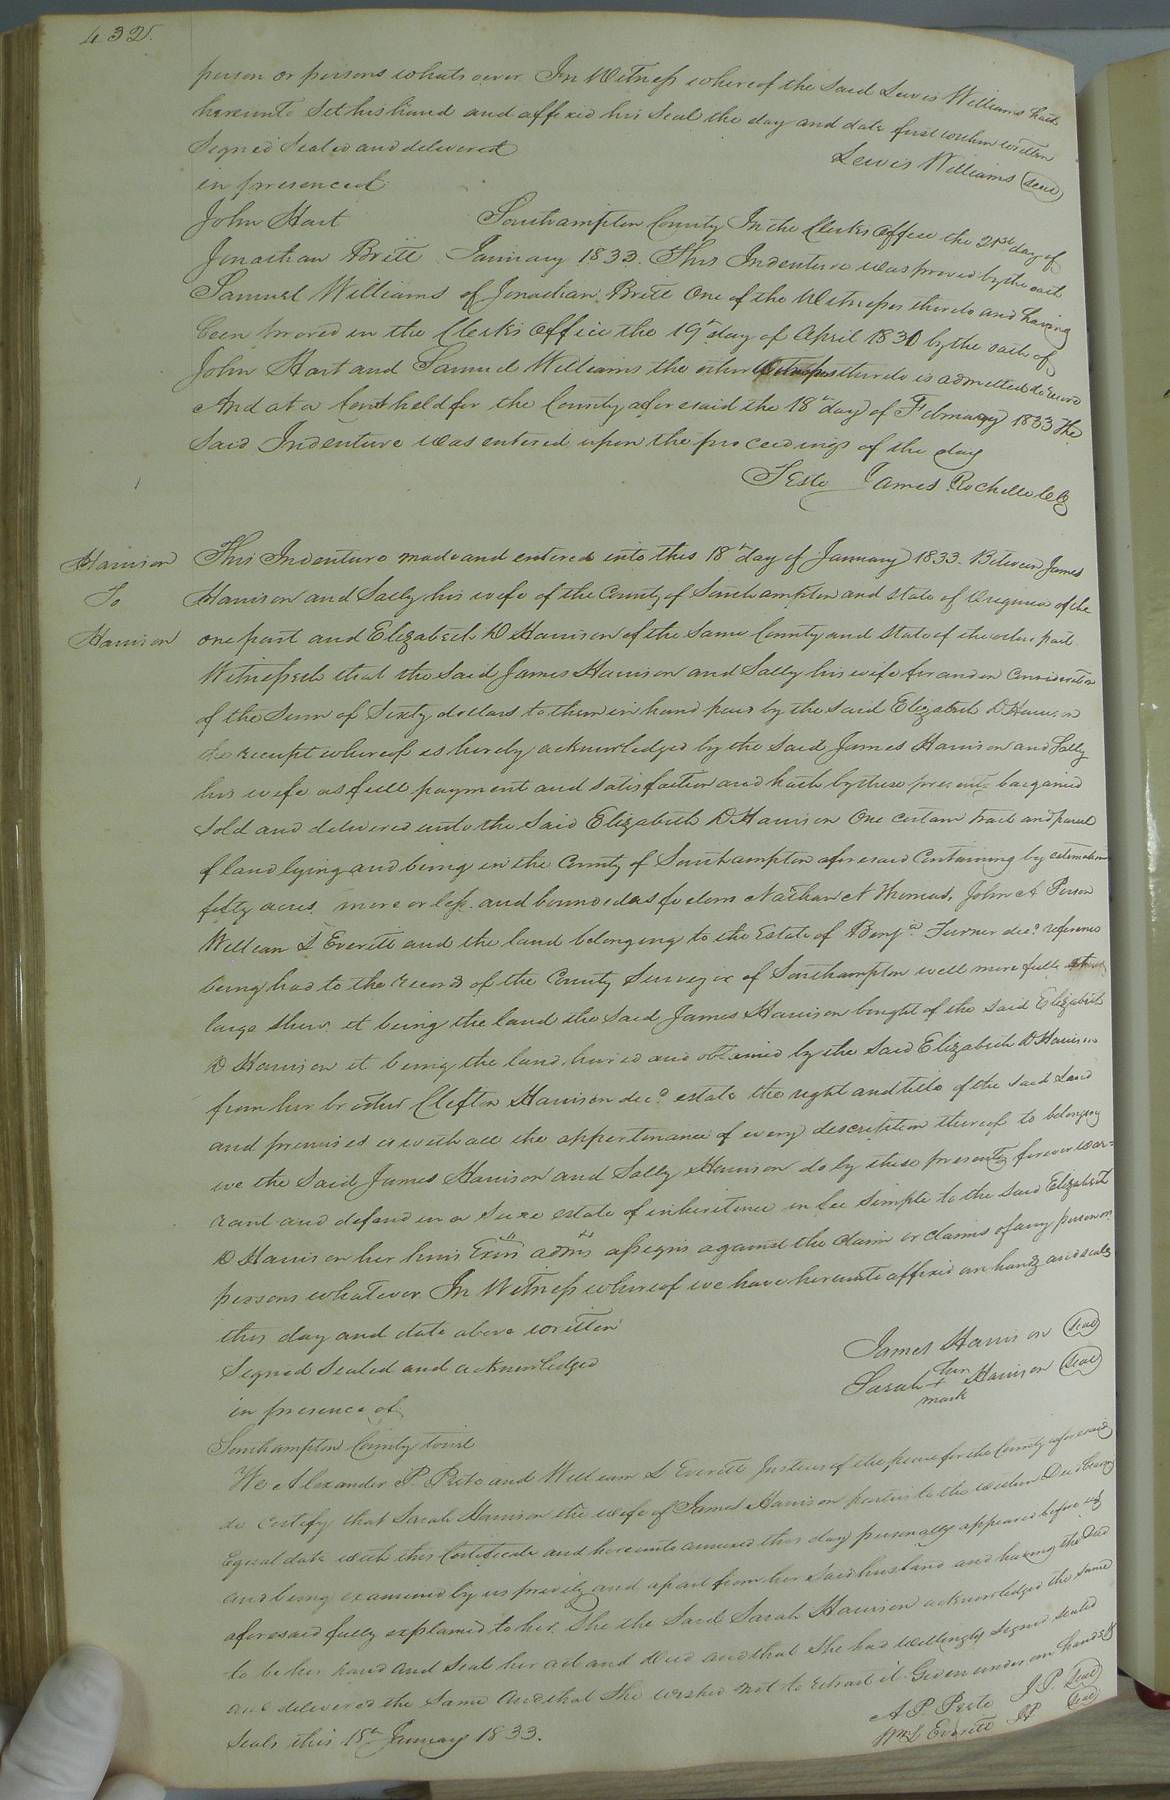 432.
person or persons whatsoever In Witness whereof the said Lewis Williams hath
hereunto set his hand and affixed his seal the day and date first within written
Signed Sealed and delivered
Lewis Williams (seal)
in presence of
John Hart
Southampton County In the Clerks Office the 21st day of
Jonathan Britt January 1833. This Indenture was proved by the oath
Samuel Williams of Jonathan Britt One of the Witnesses thereto and having
been proved in the Clerks Office the 19th day of April 1830 by the oath of
John Hart and Samuel Williams the other Witnesses thereto is admitted to record
And at a Court held for the County aforesaid the 18th day of February 1833 the
said Indenture was entered upon the proceedings of the day
Teste James Rochelle Clk
Harrison
To
Harrison
This Indenture made and entered into this 18th day of January 1833. Between James
Harrison and Sally his wife of the County of Southampton and State of Virginia of the
one part and Elizabeth D Harrison of the same County and State of the other part
Witnesseth that the said James Harrison and Sally his wife for and in Consideration
of the Sum of Sixty dollars to them in hand paid by the said Elizabeth D Harrison
the receipt whereof is hereby acknowledged by the said James Harrison and Sally
his wife as full payment and satisfaction and hath by these presents bargained
sold and delivered unto the said Elizabeth D Harrison One certain tract and parcel
of land lying and being in the County of Southampton aforesaid Containing by estimation
fifty acres more or less. and bounded as follows Nathan N Thomas, John A Person
William L Everitt and the land belonging to the Estate of Benja. Turner decd. reference
being had to the records of the County Surveyor of Southampton will more fully at
large shew. it being the land the said James Harrison bought of the said Elizabeth
D Harrison it being the land heired and obtained by the said Elizabeth D Harrison
from her brother Clefton Harrison decd. estate the right and title of the said Land
and premises with all the appertinance of every description thereof to belonging
we the said James Harrison and Sally Harrison do by these presents forever war=
rant and defend in a Sure estate of inheritence in fee Simple to the said Elizabeth
D Harrison her heirs Exrs adms assigns against the Claim or claims of any person or
persons whatever In Witness whereof we have hereunto affixed our hands and seals
this day and date above written
James Harrison (seal)
Signed Sealed and acknowledged
her
Sarah + Harrison (seal)
mark
in presence of
Southampton County towit
We Alexander P. Peete and William L Everitt Justices of the peace for the County aforesaid
do certify that Sarah Harrison the wife of James Harrison parties to the within Deed bearing
Equal date with this Certificate and hereunto annexed this day personally appeared before us
and being examined by us privily and apart from her said husband and having the Deed
aforesaid fully explained to her. She the said Sarah Harrison acknowledged the same
to be her hand and seal her act and deed and that She had willingly signed sealed
and delivered the same and that She wished not to retract it. Given under our hands &
Seals this 18th January 1833.
A P Peete J. P. (seal)
Wm L Everitt JP (seal)